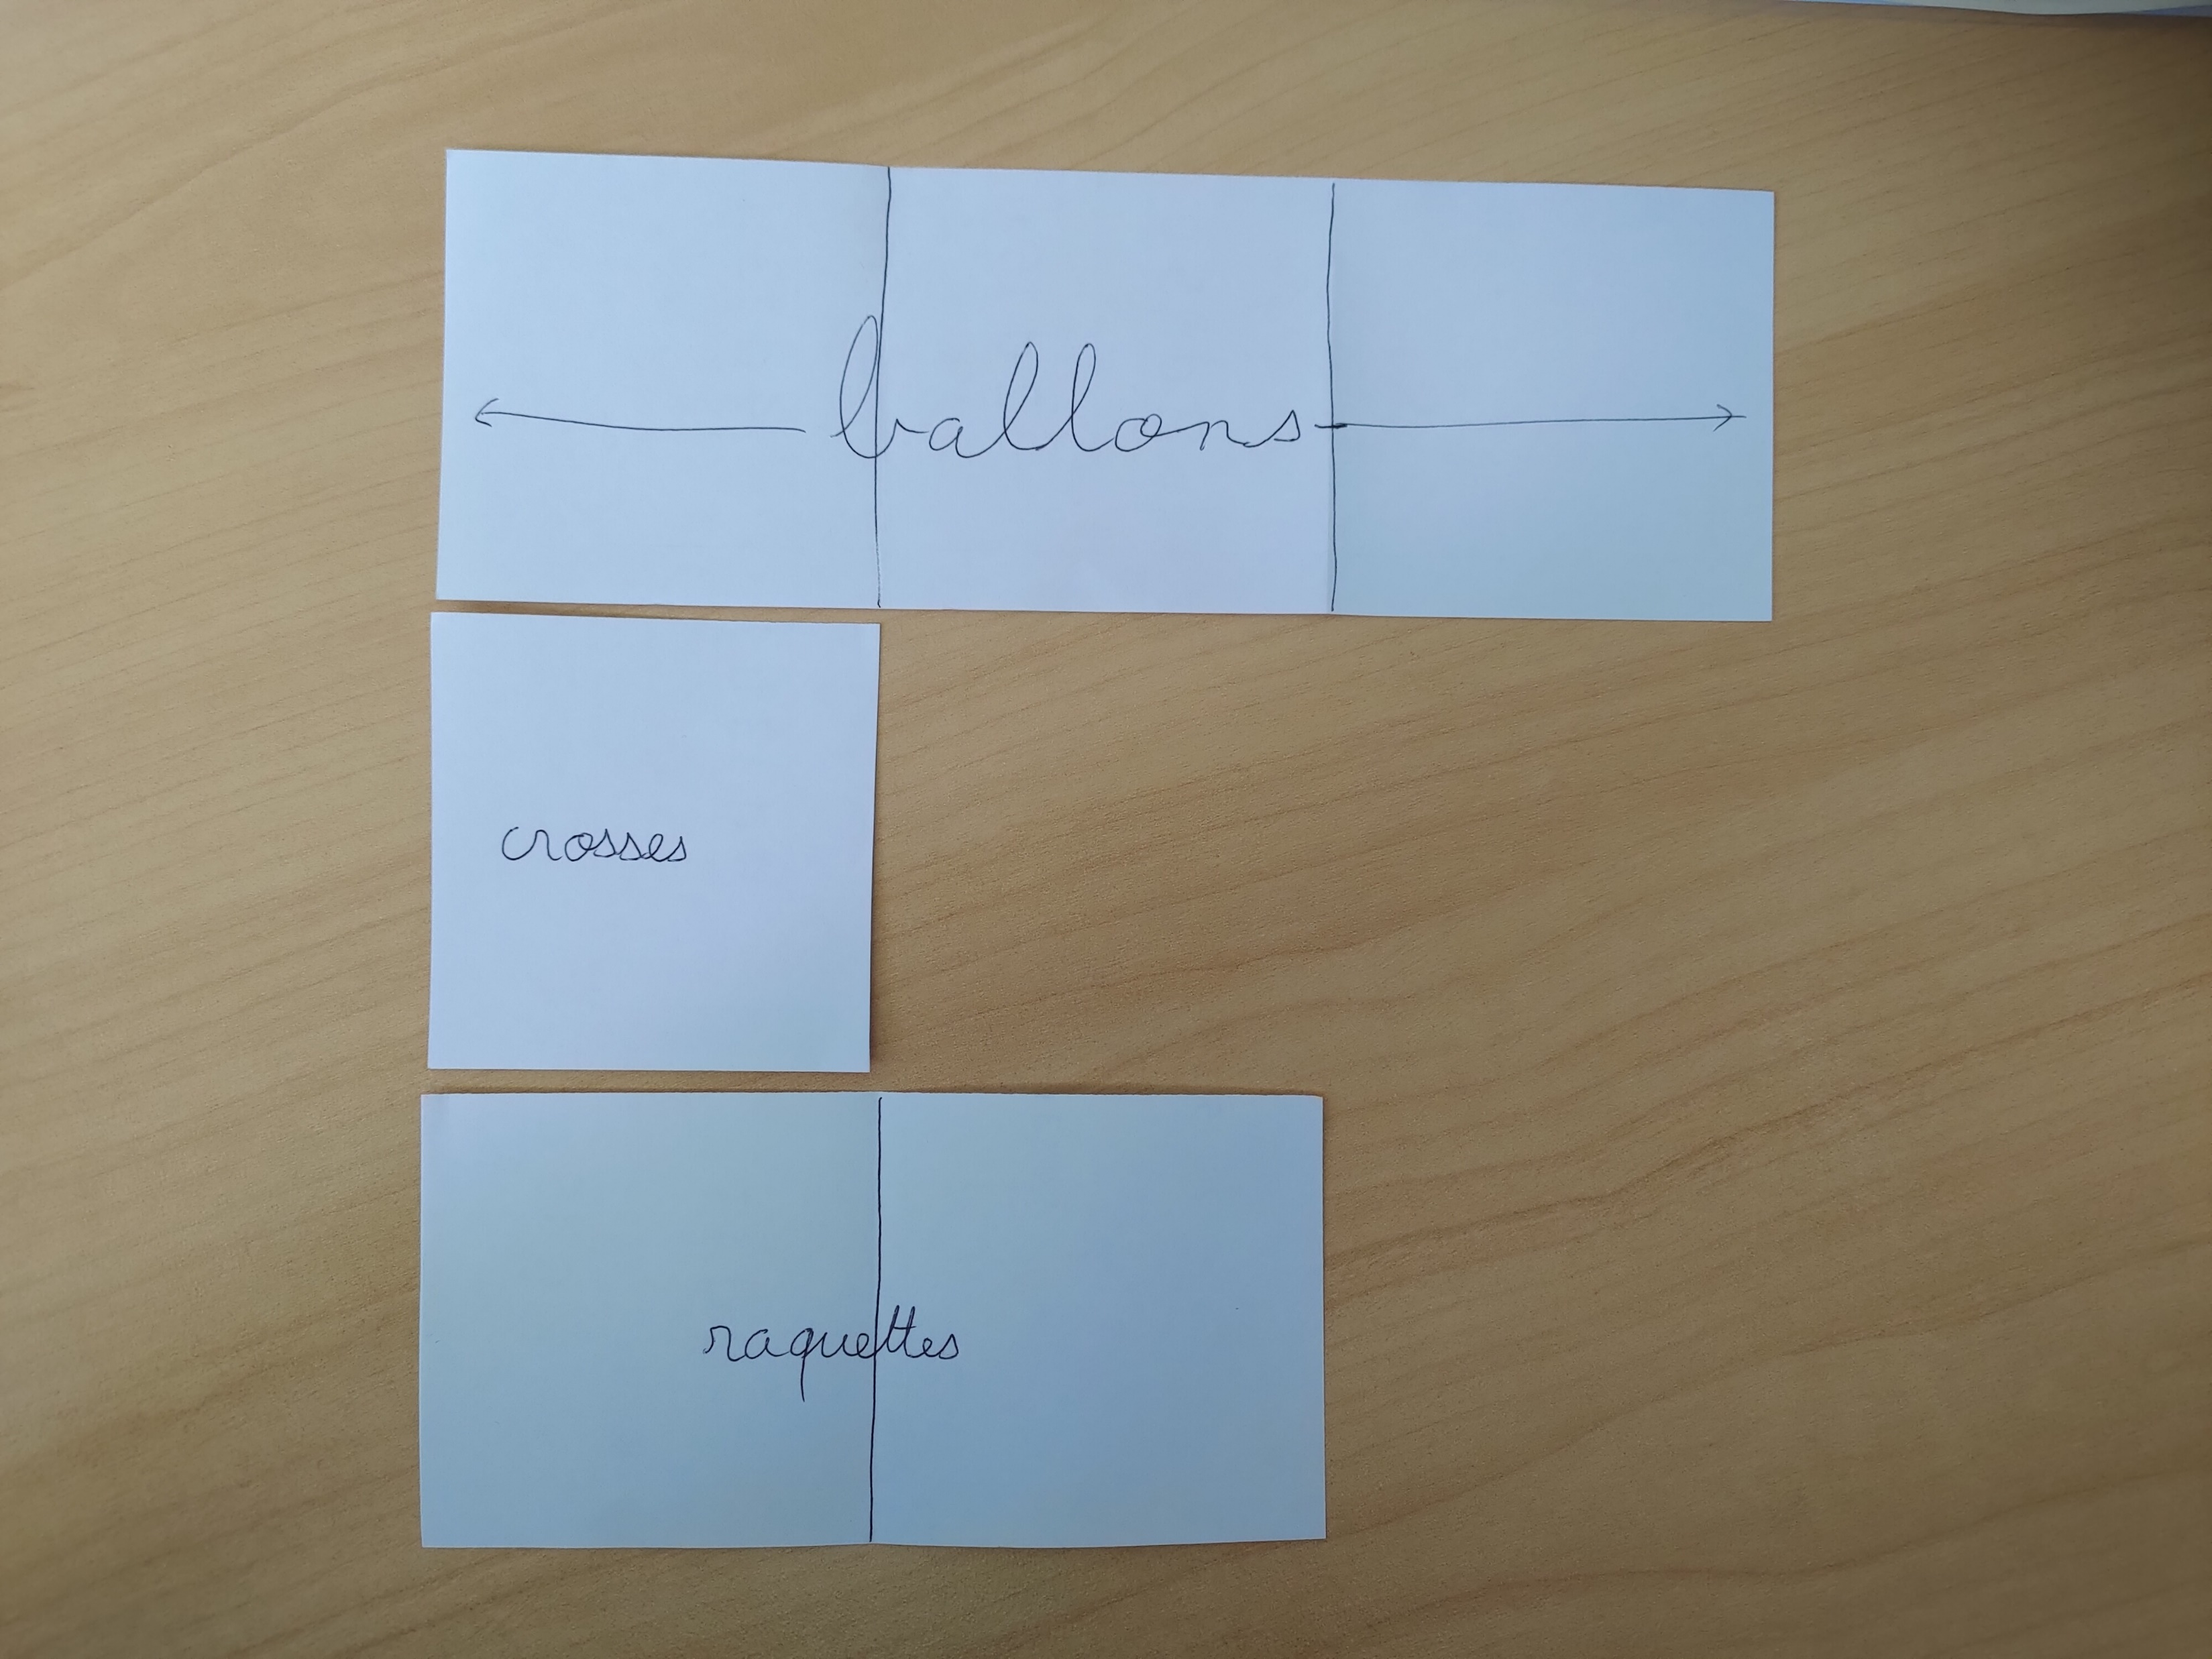 ballons
crosses
raquettes